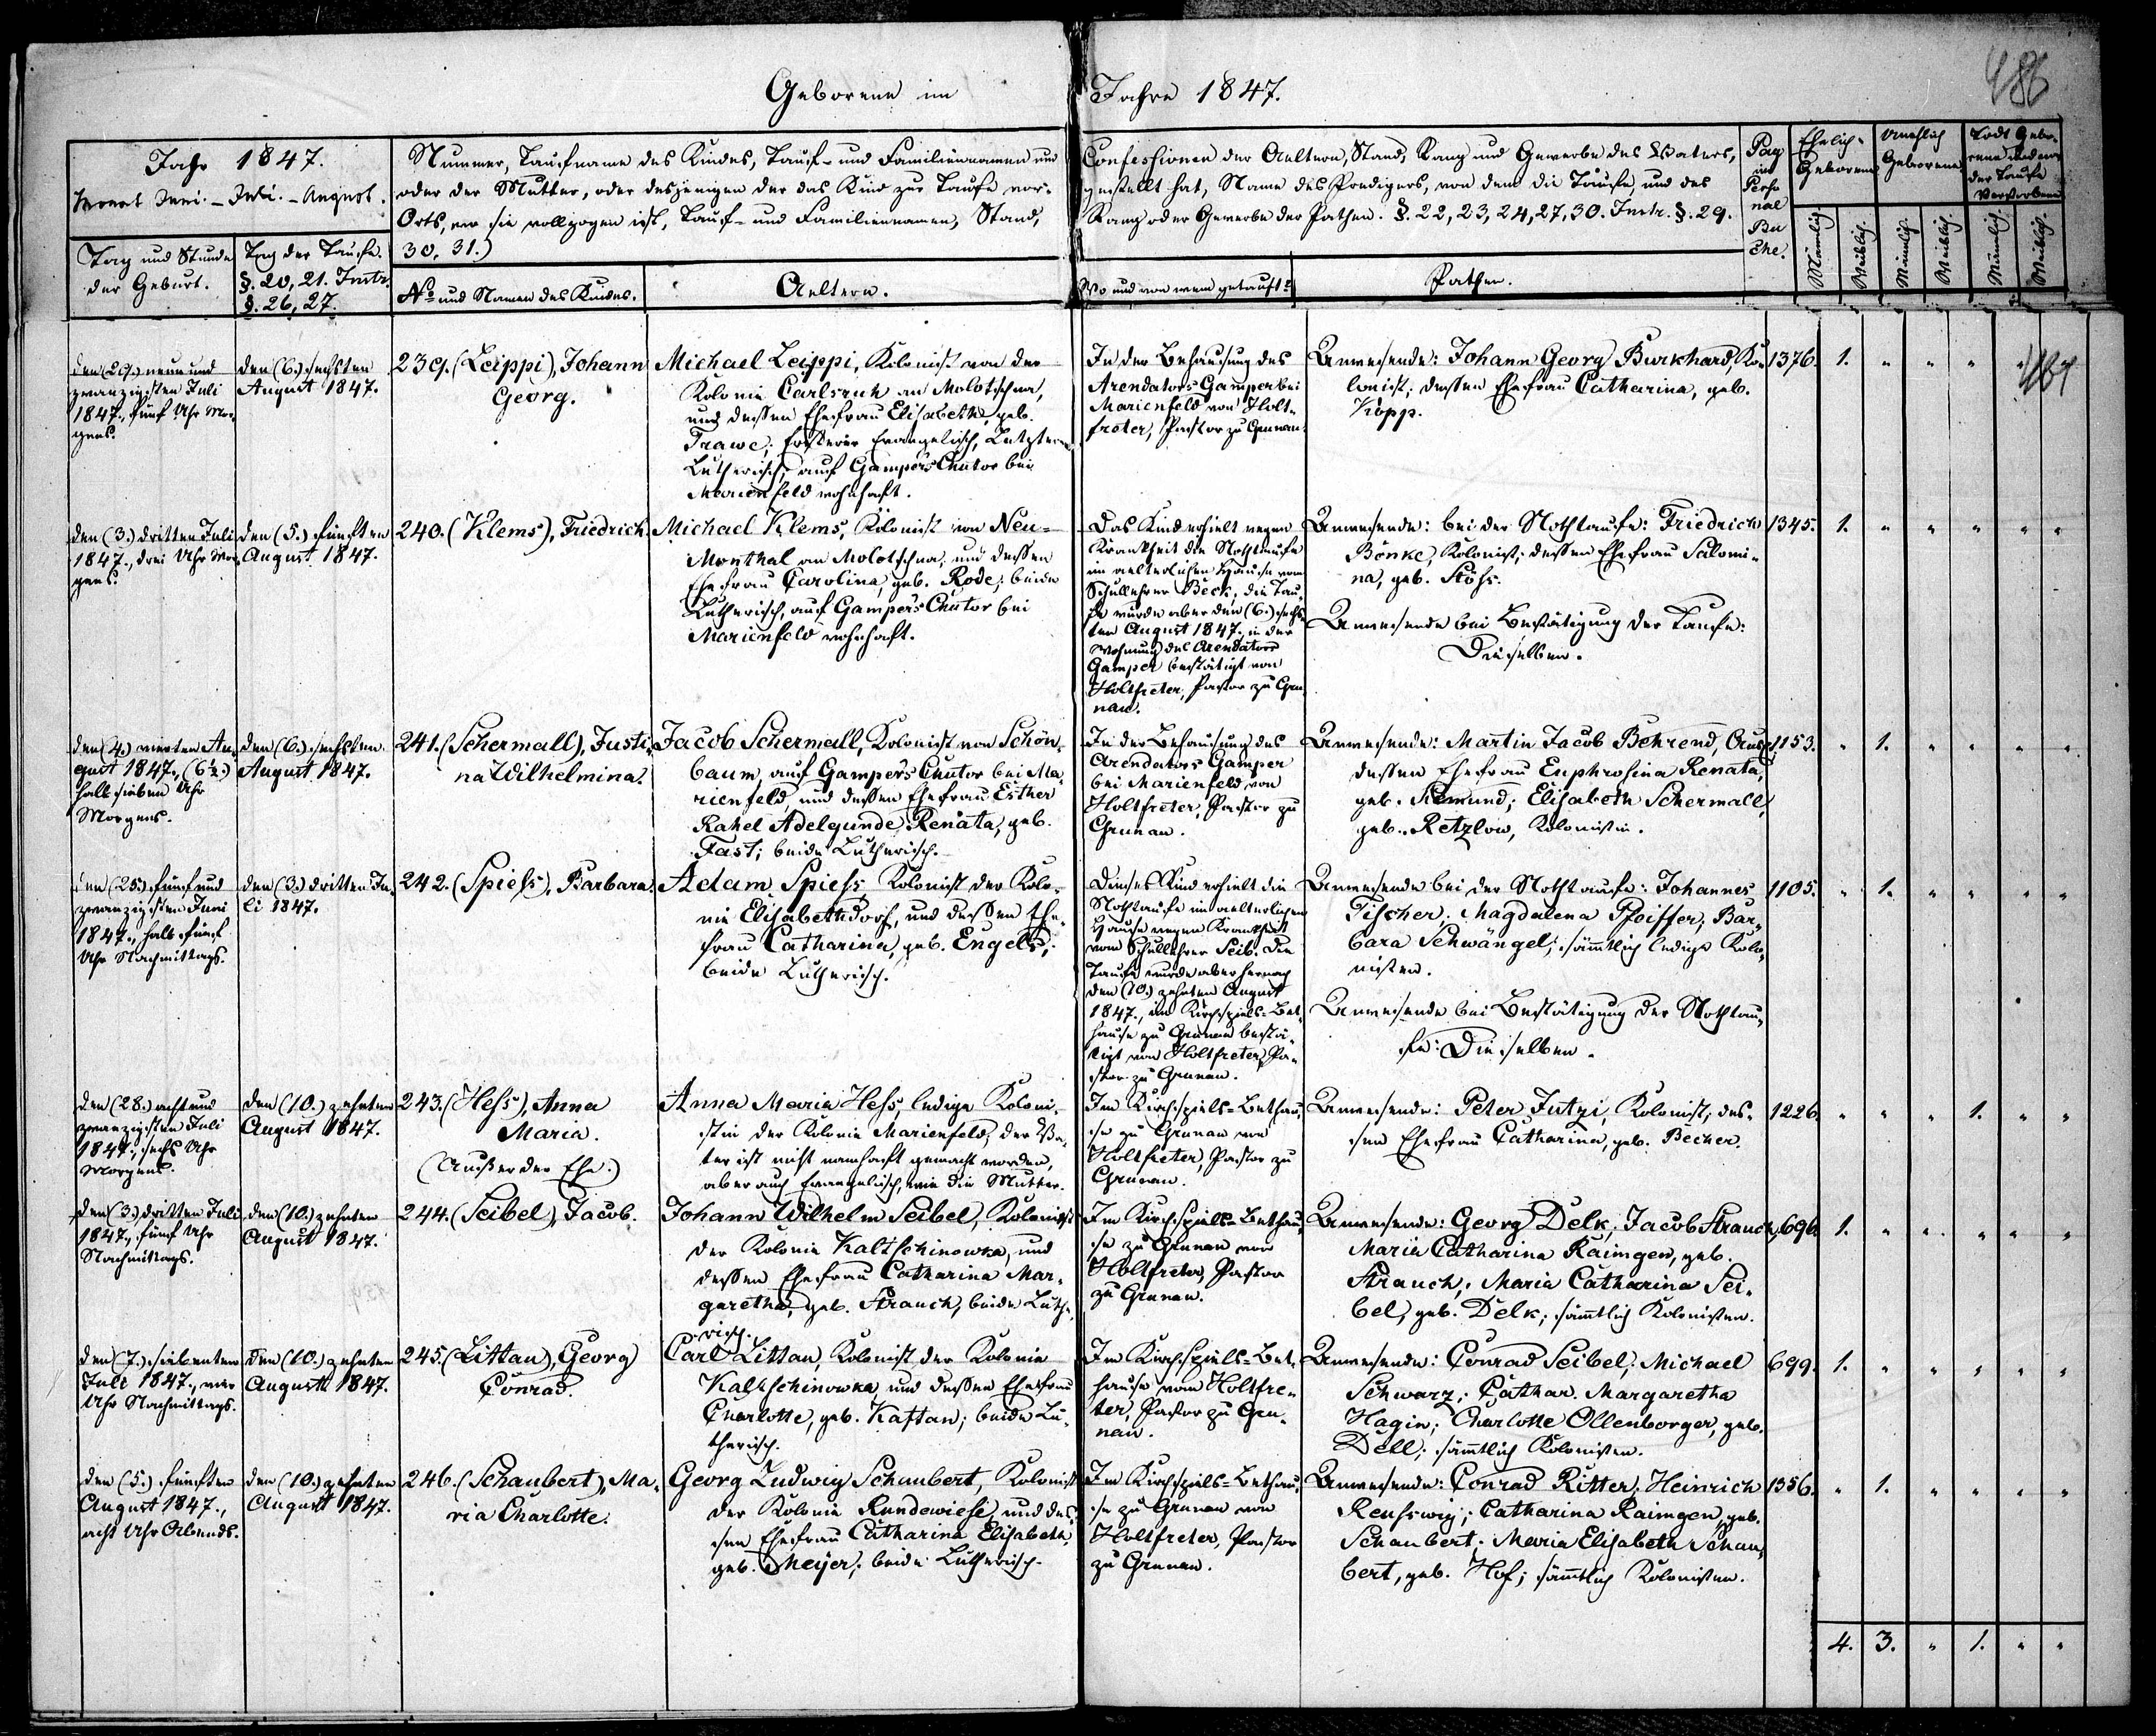 Geborene im Jahre 1847.
486
Jahr 1847.
Monat Juni. - Juli. - August.
Nummer, Taufname des Kindes, Tauf- und Familiennamen und
oder der Mutter, oder desjenigen der das Kind zur Taufe vor-
Orts, wo sie vollzogen ist, Tauf- und Familiennamen, Stand,
30, 31.)
Confessionen der Aeltern, Stand, Rang und Gewerbe des Vaters,
gestellt hat, Name des Predigers, von dem die Taufe, und des
Rang oder Gewerbe der Pathen. §. 22, 23, 24, 27, 30. Instr. §. 29.
Pag
im
Perso
nal
Bu
che.
Ehelich-
Geborene
Unehelich
Geborene
Todt Gebo-
rene und vor
der Taufe
Verstorbene
Tag und Stunde
der Geburt.
Tag der Taufe.
§. 20, 21. Instr.
§. 26, 27.
No und Namen des Kindes.
Aeltern.
Wo und von wem getauft?
Pathen.
Männlich.
Weiblich.
Männlich.
Weiblich.
Männlich.
Weiblich.
den (29.) neun und
zwanzigsten Juli
1847., fünf Uhr Mor-
gens.
den (6.) sechsten
August 1847.
239. (Leippi), Johann
Georg.
Michael Leippi, Kolonist von der
Kolonie Carlsruh an Molotschna,
und dessen Ehefrau Elisabeth, geb.
Trawe; Ersterer Evangelisch, Letztere
Lutherisch, auf Gamper's Chutor bei
Marienfeld wohnhaft.
In der Behausung des
Arendators Gamper bei
Marienfeld von Holt-
freter, Pastor zu Grunau.
Anwesende: Johann Georg Burkhard, Ko-
lonist; dessen Ehefrau Catharina, geb.
Kopp.
1376. 1. " " " "
487
den (3.) dritten Juli
1847., drei Uhr Mor-
gens.
den (5.) fünften
August 1847.
240. (Klems), Friedrich.
Michael Klems, Kolonist von Neu-
Monthal an Molotschna, und dessen
Ehefrau Carolina, geb. Rode; beide
Lutherisch, auf Gamper's Chutor bei
Marienfeld wohnhaft.
Das Kind erhielt wegen
Krankheit die Nothtaufe
im aelterlichen Hause vom
Schullehrer Beck, die Tau-
fe wurde aber den (6.) sechs-
ten August 1847., in der
Wohnung des Arendators
Gamper bestätigt von
Holtfreter, Pastor zu Gru-
nau.
Anwesende: bei der Nothtaufe: Friedrich
Bönke, Kolonist; dessen Ehefrau Salomi-
na, geb. Stöhs.
Anwesende bei Bestätigung der Taufe:
Dieselben.
1345. 1. " " " " "
den (4.) vierten Au-
gust 1847., (6½.)
halb sieben Uhr
Morgens.
den (6.) sechsten
August 1847.
241. (Schermall), Justi-
na Wilhelmina.
Jacob Schermall, Kolonist von Schön-
baum, auf Gamper's Chutor bei Ma-
rienfeld, und dessen Ehefrau Esther
Rahel Adelgunde Renata, geb.
Fast; beide Lutherisch.
In der Behausung des
Arendators Gamper
bei Marienfeld von
Holtfreter, Pastor zu
Grunau.
Anwesende: Martin Jacob Behrend,
dessen Ehefrau Euphrosina Renata,
geb. Siemund; Elisabeth Schermall,
geb. Retzlow, Kolonistin.
1153. " 1. " " " "
den (25.) fünf und
zwanzigsten Juni
1847., halb fünf
Uhr Nachmittags.
den (3.) dritten Ju-
li 1847.
242. (Spiess), Barbara.
Adam Spiess Kolonist der Kolo-
nie Elisabethdorf, und dessen Ehe-
frau Catharina, geb. Engels;
beide Lutherisch.
Dieses Kind erhielt die
Nothtaufe im aelterlichen
Hause wegen Krankheit
vom Schullehrer Seib. Die
Taufe wurde aber hernach
den (10.) zehnten August
1847., im Kirchspiels-Bet-
hause zu Grunau bestä-
tigt von Holtfreter, Pa-
stor zu Grunau.
Anwesende bei der Nothtaufe: Johannes
Fischer; Magdalena Pfeiffer; Bar-
bara Schwängel; sämtlich ledige Kolo-
nisten.
Anwesende bei Bestätigung der Nothtau-
fe: Dieselben.
1105. " 1. " " " "
den (28.) acht und
zwanzigsten Juli
1847., sechs Uhr
Morgens.
den (10.) zehnten
August 1847.
243. (Hess), Anna
Maria.
(Außer der Ehe.)
Anna Maria Hess, ledige Koloni-
stin der Kolonie Marienfeld, der Va-
ter ist nicht namhaft gemacht worden,
aber auch Evangelisch, wie die Mutter.
Im Kirchspiels-Bethau-
se zu Grunau von
Holtfreter, Pastor zu
Grunau.
Anwesende: Peter Jutzi, Kolonist; des-
sen Ehefrau Catharina, geb. Becher.
1226. " " " 1. " "
den (3.) dritten Juli
1847., fünf Uhr
Nachmittags.
den (10.) zehnten
August 1847.
244. (Seibel), Jacob.
Johann Wilhelm Seibel, Kolonist
der Kolonie Kaltschinowka, und
dessen Ehefrau Catharina Mar-
garetha, geb. Strauch, beide Luthe-
risch.
Im Kirchspiels-Bethau-
se zu Grunau von
Holtfreter, Pastor
zu Grunau.
Anwesende: Georg Delk; Jacob Strauch;
Maria Catharina Raimgen, geb.
Strauch; Maria Catharina Sei-
bel, geb. Delk; sämtlich Kolonisten.
696. 1. " " " " "
den (7.) siebenten
Juli 1847., vier
Uhr Nachmittags.
den (10.) zehnten
August 1847.
245. (Littau), Georg
Conrad.
Carl Littau, Kolonist der Kolonie
Kaltschinowka, und dessen Ehefrau
Charlotte, geb. Kaftan; beide Lu-
therisch.
Im Kirchspiels-Bet-
hause von Holtfre-
ter, Pastor zu Gru-
nau.
Anwesende: Conrad Seibel; Michael
Schwarz; Cathar. Margaretha
Hagin; Charlotte Ollenborger, geb.
Dell; sämtlich Kolonisten.
699. 1. " " " " "
den (5.) fünften
August 1847.,
acht Uhr Abends.
den (10.) zehnten
August 1847.
246. (Schaubert), Ma-
ria Charlotte.
Georg Ludwig Schaubert, Kolonist
der Kolonie Rundewiese, und des-
sen Ehefrau Catharina Elisabeth,
geb. Meijer; beide Lutherisch.
Im Kirchspiels-Bethau-
se zu Grunau von
Holtfreter, Pastor
zu Grunau.
Anwesende: Conrad Ritter; Heinrich
Reusswig; Catharina Raimgen, geb.
Schaubert; Maria Elisabeth Schau-
bert, geb. Hof; sämtlich Kolonisten.
1356. " 1. " " " "
4. 3. " 1. " "